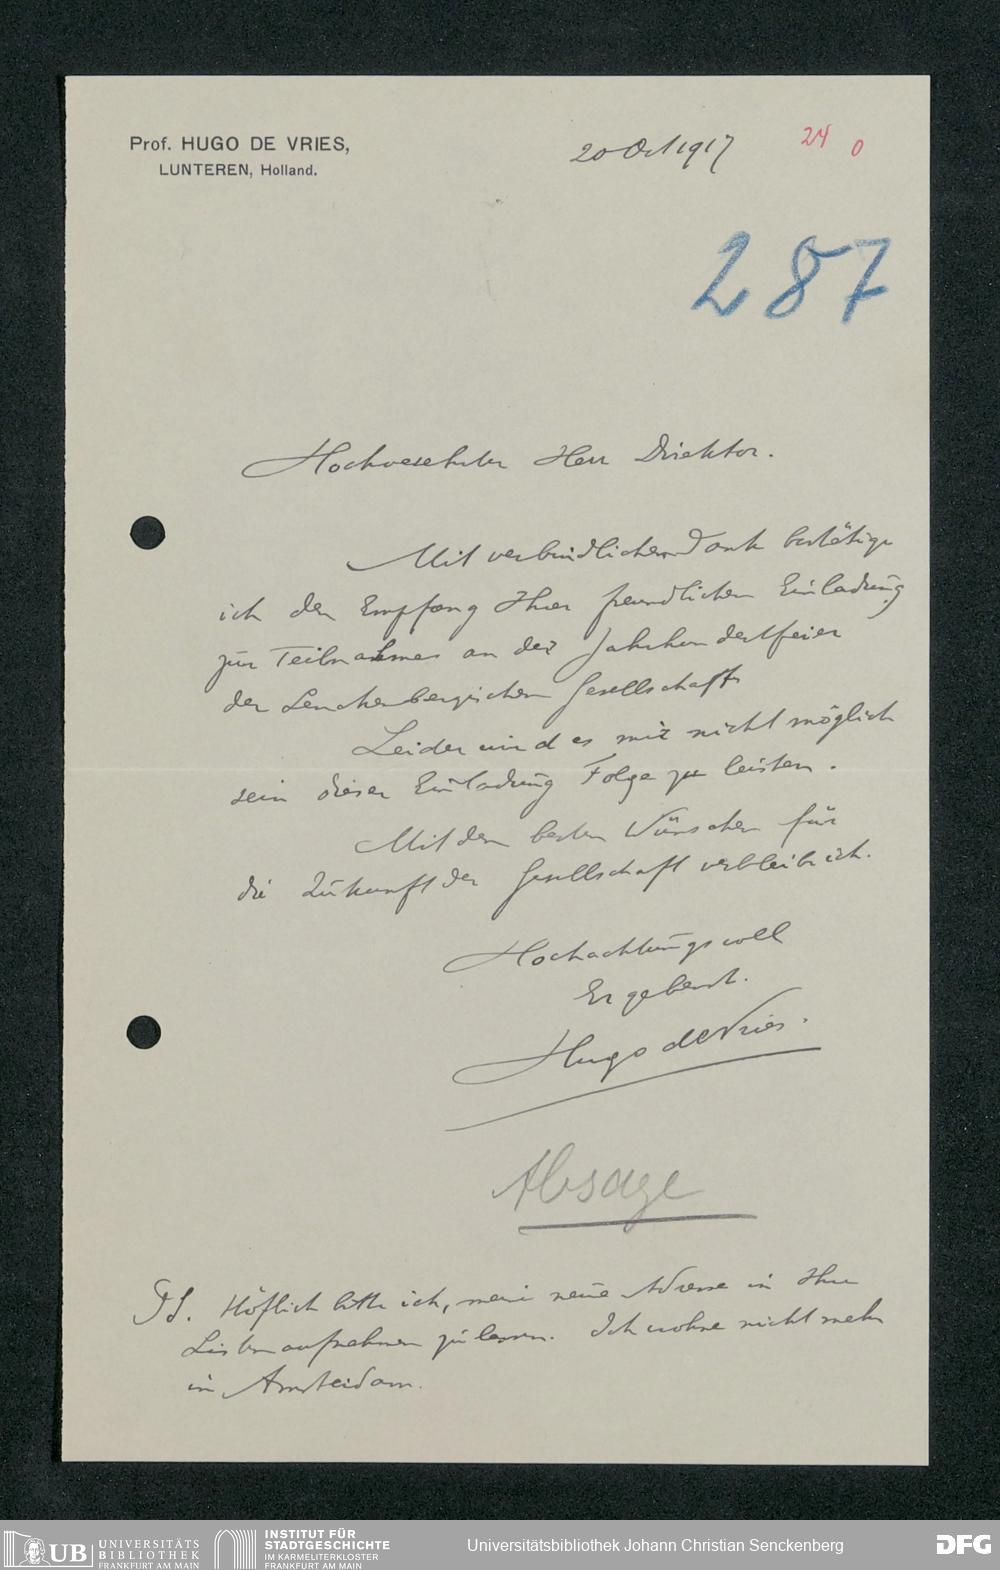 Prof. HUGO DE VRIES,
LUNTEREN, Holland.
20 Oct 1917
24 0
287
Hochverehrter Herr Direktor.
Mit verbindlichem Dank bestätige
ich den Empfang Ihrer freundlichen Einladung
zur Teilnahme an der Jahrhundertfeier
der Senckenbergischen Gesellschaft
Leider wird es mir nicht möglich
sein dieser Einladung Folge zu leisten.
Mit den besten Wünschen für
die Zukunft der Gesellschaft verbleibe ich.
Hochachtungsvoll
Ergebenst.
Hugo de Vries.
Absage
PS. Höflich bitte ich, meine neue Adresse in Ihre
Listen aufnehmen zu lassen. Ich wohne nicht mehr
in Amsterdam.
UB UNIVERSITÄTS
BIBLIOTHEK
FRANKFURT AM MAIN
INSTITUT FÜR
STADTGESCHICHTE
IM KARMELITERKLOSTER
FRANKFURT AM MAIN
Universitätsbibliothek Johann Christian Senckenberg
DFG